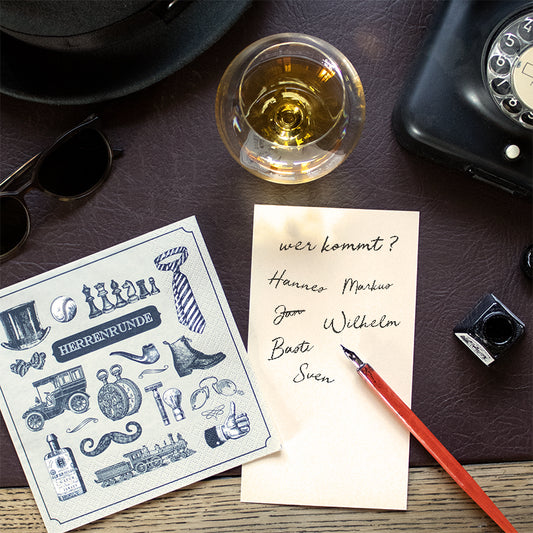 wer kommt?
Hannes Markus
Jan Wilhelm
Basti
Sven
HERRENRUNDE